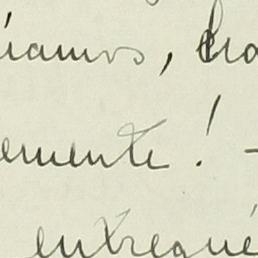 iamos, tra
emente! -
entregué